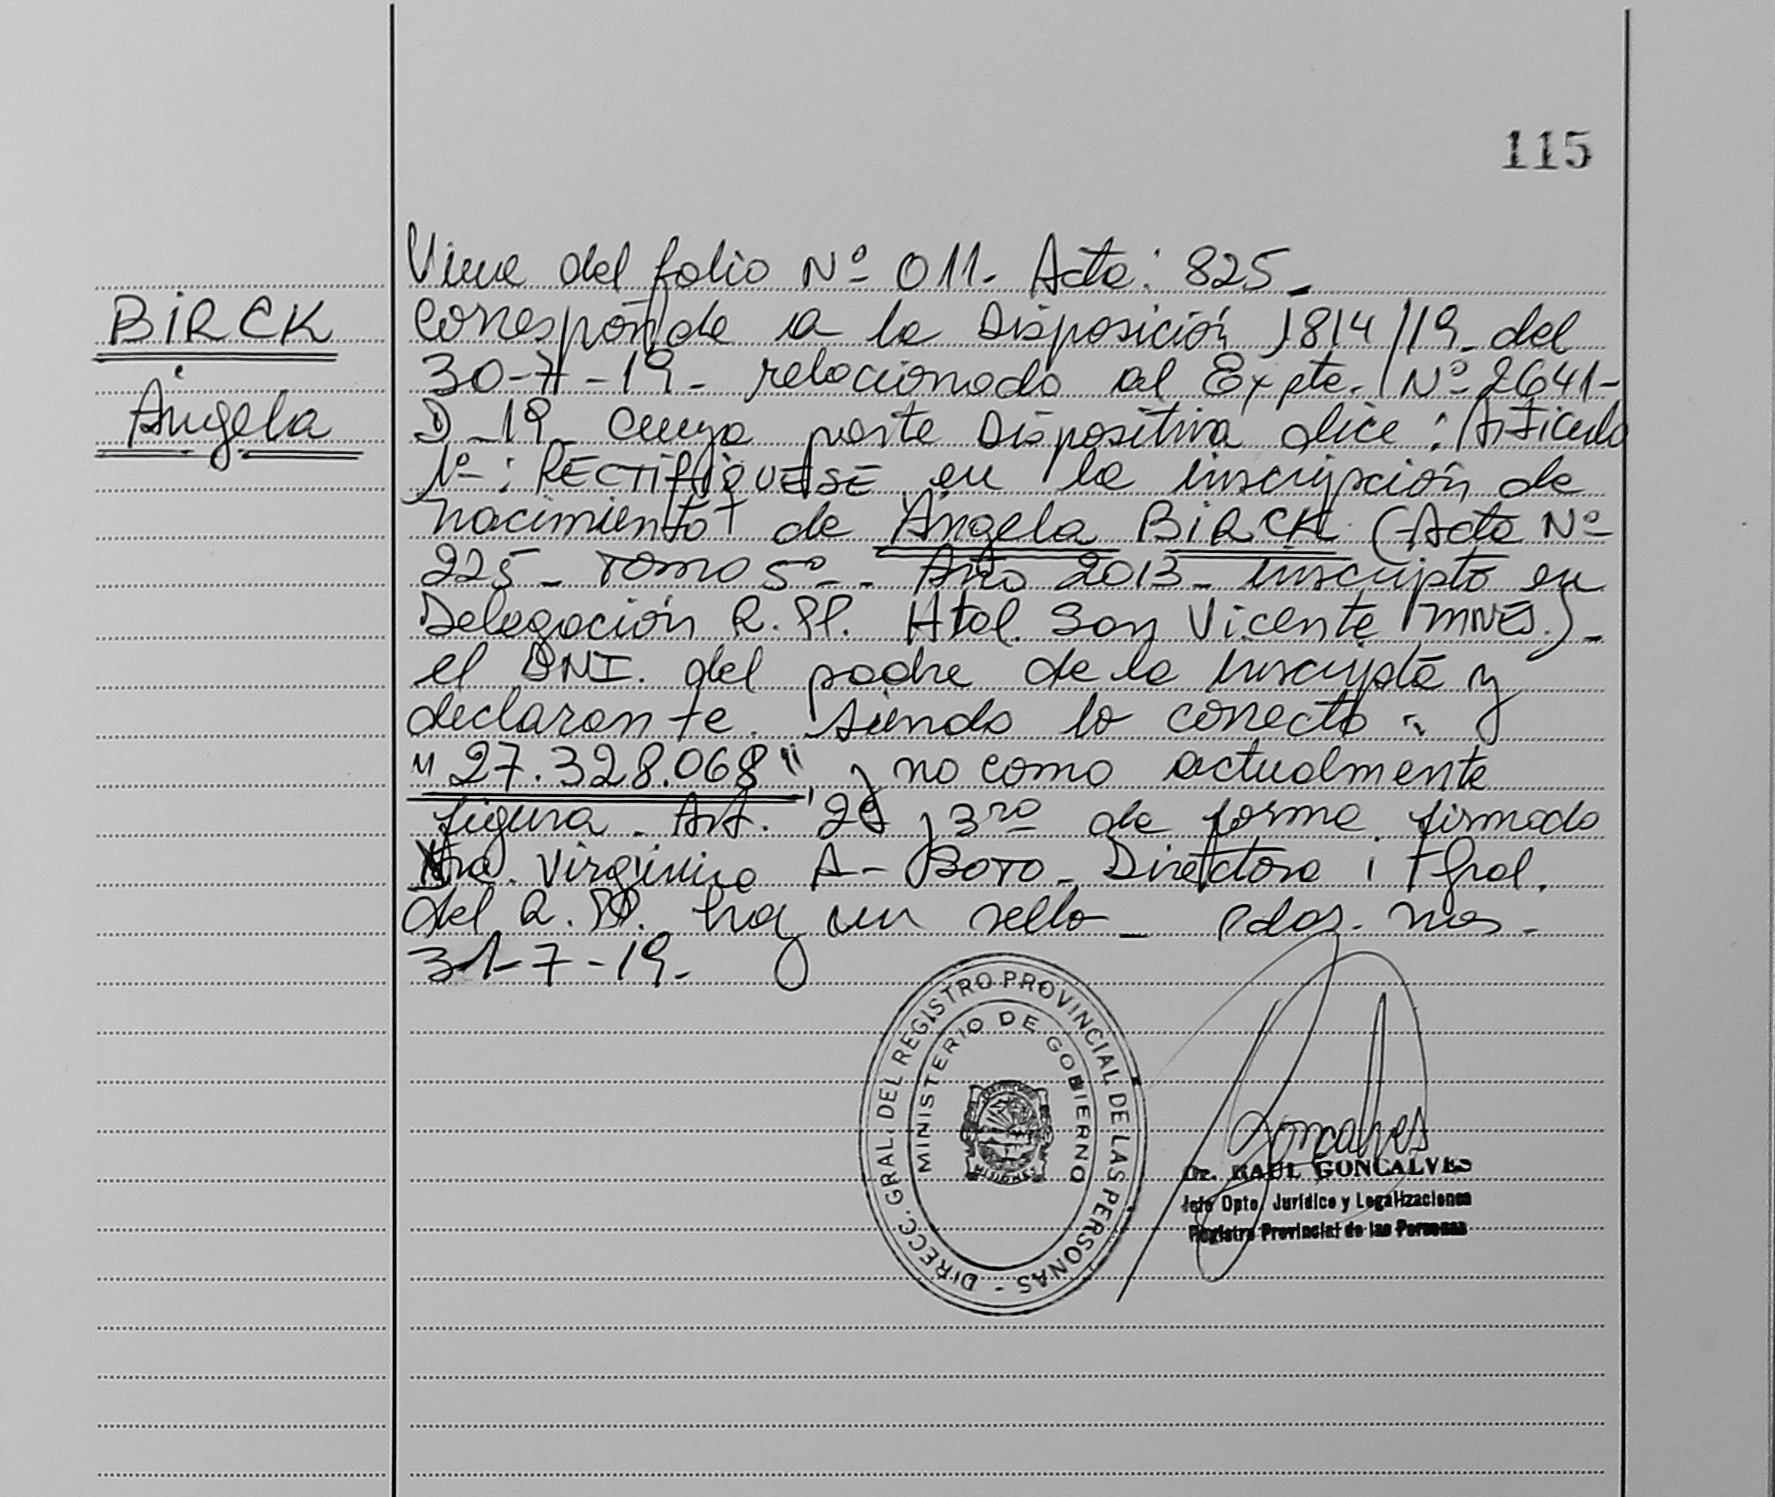 115
BIRCK
Ángela
Viene del folio Nº 011. Acta: 825_
Corresponde a la Disposición 1814/19_ del
30-7-19_ relacionado al Expte. Nº 2641-
D_19_ cuya parte Dispositiva dice: Articulo
1º: RECTIFIQUESE en la inscripción de
nacimiento de Ángela BIRCK (Acta Nº
225_ TOMO 5º_. Año 2013_ inscripto en
Delegación R.PP. Htal. San Vicente MNES.)_
el DNI. del padre de la inscripta y
declarante. siendo lo correcto
"27.328.068", y no como actualmente
figura. Art. 2º y 3ro de forma. firmado
Virginia A- BOTO_ Directora Gral.
del R.PP. hay un sello_ Pdas. Mnes.
31-7-19.
DIRECC. GRAL. DEL REGISTRO PROVINCIAL DE LAS PERSONAS -
MINISTERIO DE GOBIERNO
MISIONES
Goncalves
Dr. RAUL GONCALVES
Jefe Dpto. Jurídico y Legalizaciones
Registro Provincial de las Personas